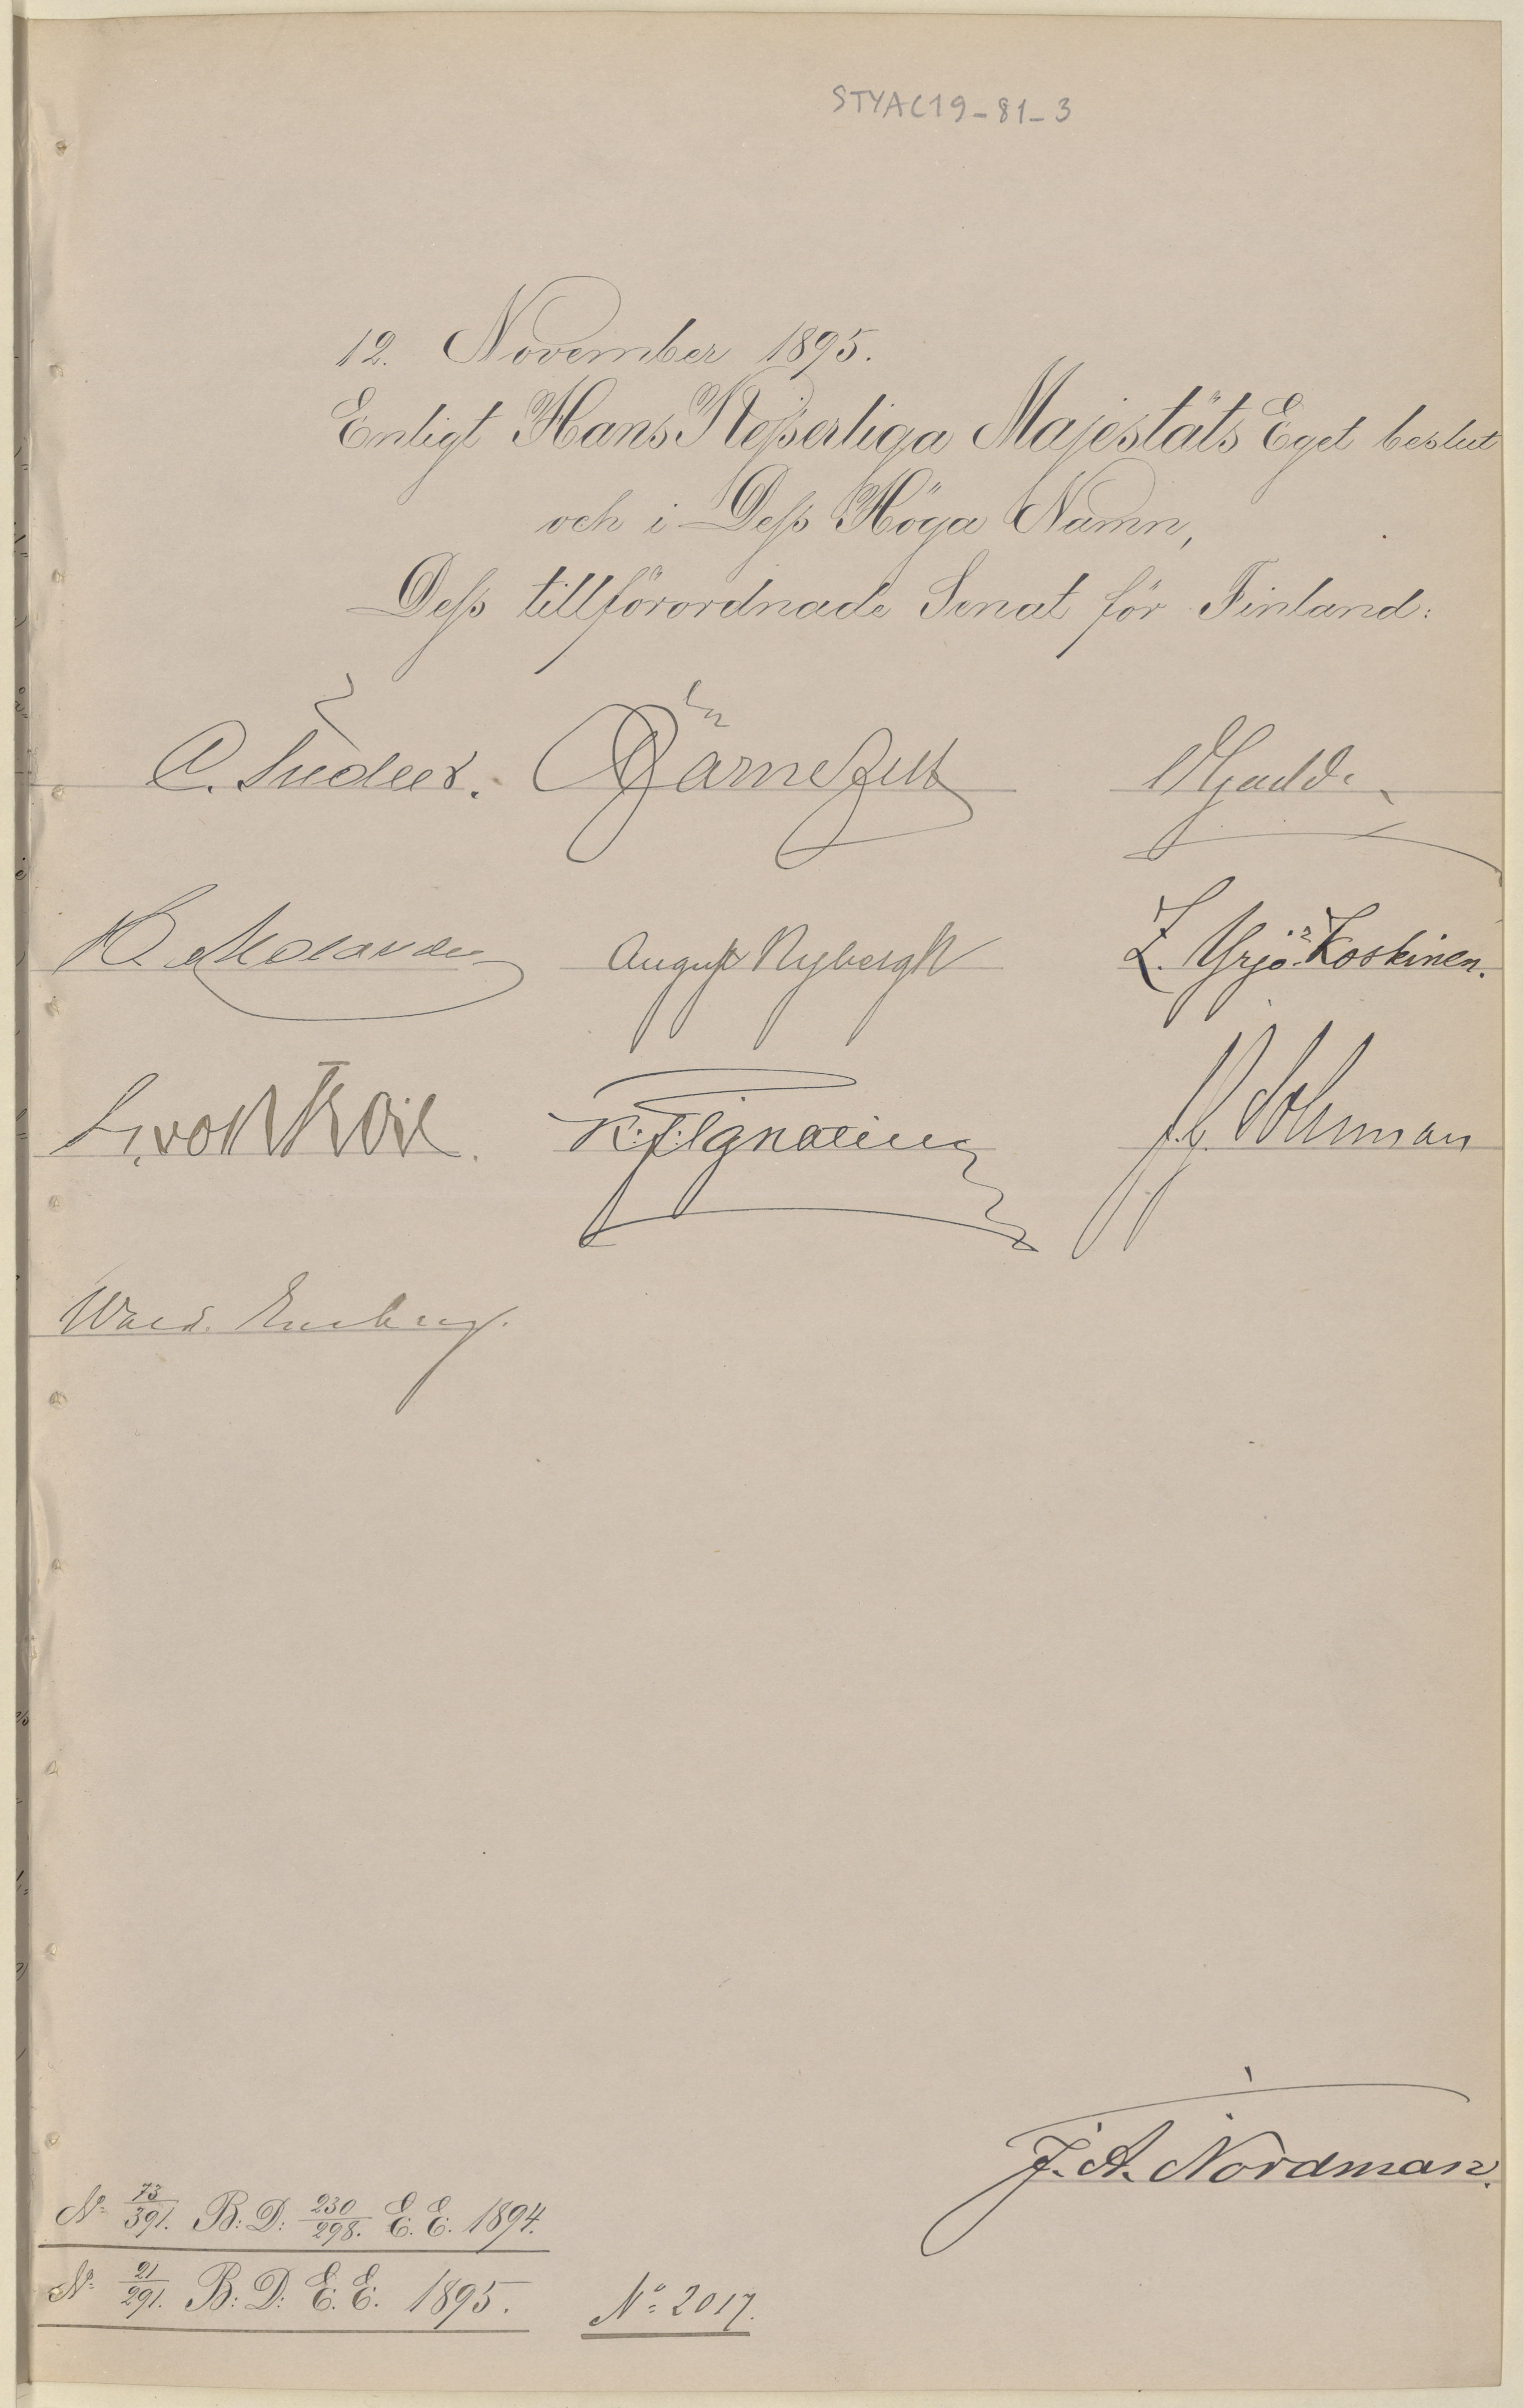 STYAC19-81-3
12. November 1895.
Enligt Hans Kejserliga Majestäts Eget beslut
och i Dess Höga Namn,
Dess tillförordnade Senat för Finland:
C. Tudeer. Järnefelt Gadd.
C. Molander August Nybergh Z. Yrjö-Koskinen.
S. von Troil. K. F. Ignatius J. G. Sohlman
Wald. Eneberg.
J. A. Nordman.
No 73/391. B: D: 230/298. E. E. 1894.
No 21/291. B: D: E. E. 1895. No 2017.